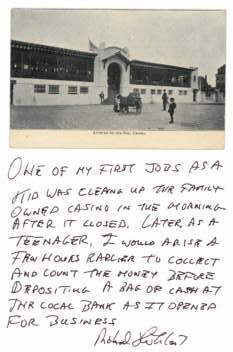 ONE OF MY FIRST JOBS AS A
KID WAS CLEANG UP THR FAMILY
OWNED CASINO IN THE MORNING
AFTER IT CLOSED. LATER, AS A
TEENAGER, I WOULD ARISE A
FEW HOURS EARLIER TO COLLECT
AND COUNT THE MONEY BEFORE
DEPOSITING A BAG OF CASH AT
THR LOCAL BANK AS IT OPENED
FOR BUSINESS
Richard